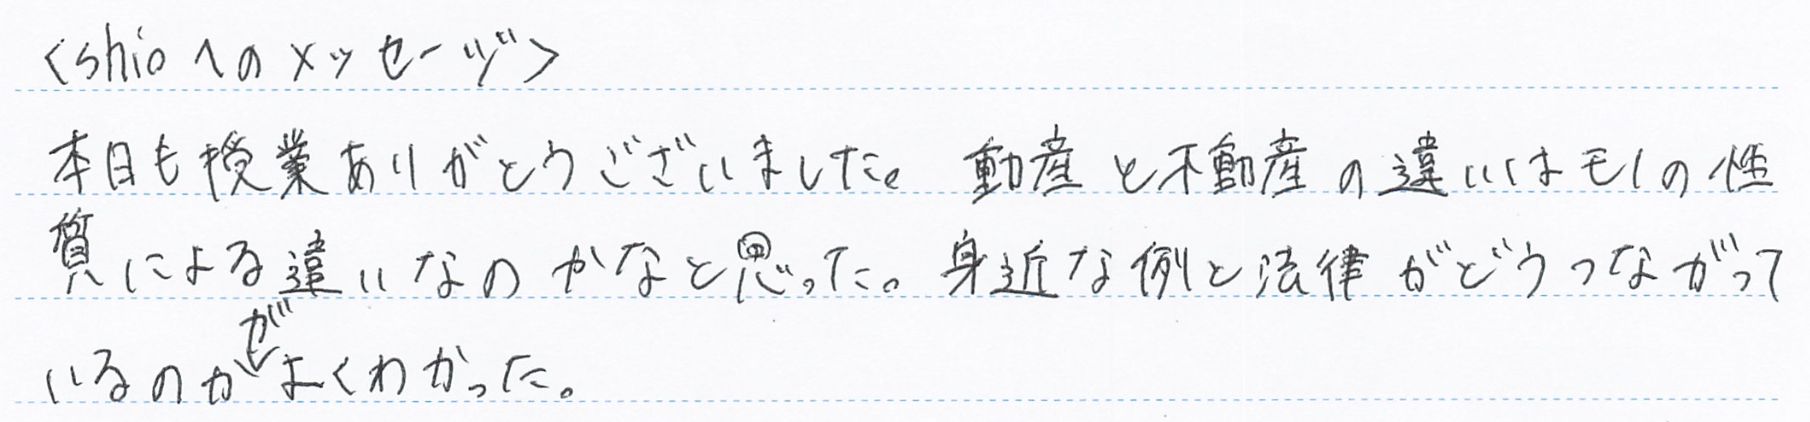 <shioへのメッセージ>
本日も授業ありがとうございました。動産と不動産の違いはモノの性
質による違いなのかなと思った。身近な例と法律がどうつながって
いるのかがよくわかった。